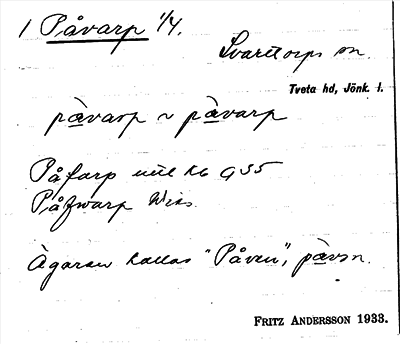 1 Påvarp 1/4.
Svarttorps sn.
Tveta hd, Jönk. l.
pàvarp ~ pàvarp
Påfarp
Påfwarp
Ägaren kallas "Påven", pàvən.
FRITZ ANDERSSON 1933.